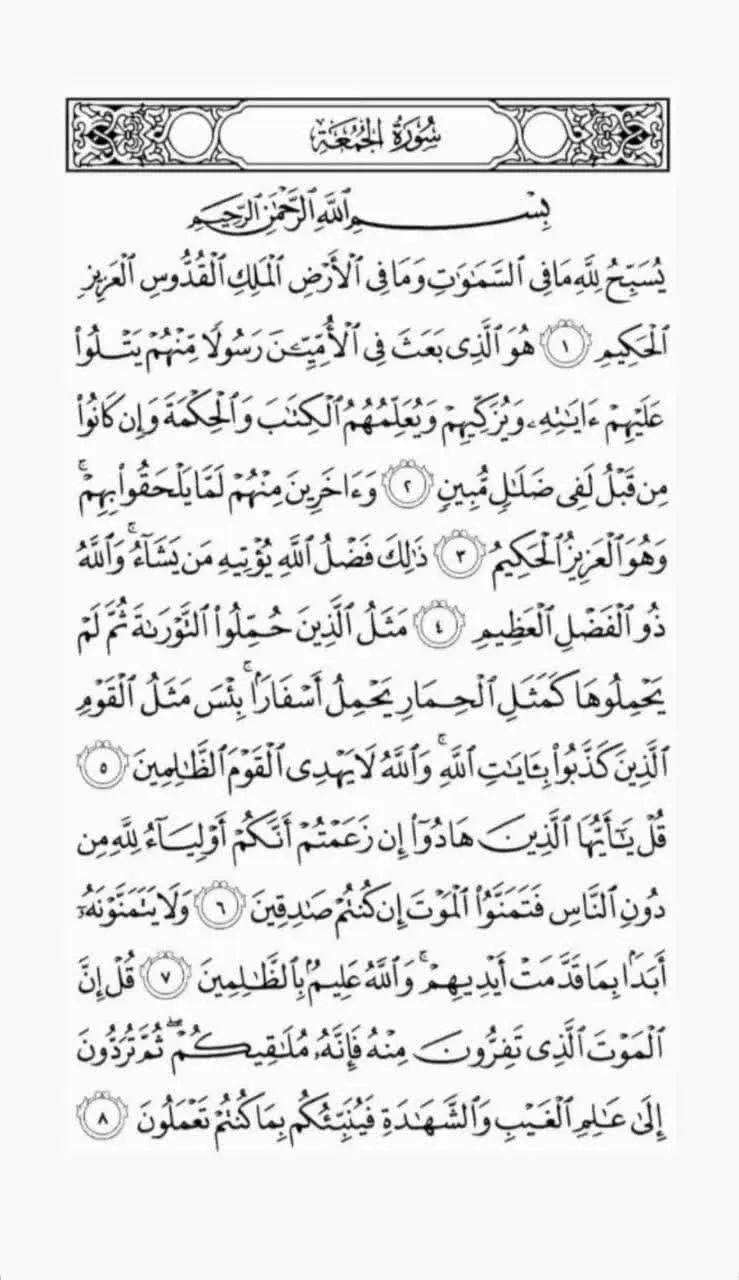 سُورَةُ الجُمُعَة
بِسْمِ اللَّهِ الرَّحْمَٰنِ الرَّحِيمِ
يُسَبِّحُ لِلَّهِ مَا فِي السَّمَٰوَٰتِ وَمَا فِي الْأَرْضِ الْمَلِكِ الْقُدُّوسِ الْعَزِيزِ
الْحَكِيمِ ١ هُوَ الَّذِي بَعَثَ فِي الْأُمِّيِّۦنَ رَسُولًا مِّنْهُمْ يَتْلُوا۟
عَلَيْهِمْ ءَايَٰتِهِۦ وَيُزَكِّيهِمْ وَيُعَلِّمُهُمُ الْكِتَٰبَ وَالْحِكْمَةَ وَإِن كَانُوا۟
مِن قَبْلُ لَفِي ضَلَٰلٍ مُّبِينٍ ٢ وَءَاخَرِينَ مِنْهُمْ لَمَّا يَلْحَقُوا۟ بِهِمْ ۚ
وَهُوَ الْعَزِيزُ الْحَكِيمُ ٣ ذَٰلِكَ فَضْلُ اللَّهِ يُؤْتِيهِ مَن يَشَآءُ ۚ وَاللَّهُ
ذُو الْفَضْلِ الْعَظِيمِ ٤ مَثَلُ الَّذِينَ حُمِّلُوا۟ التَّوْرَىٰةَ ثُمَّ لَمْ
يَحْمِلُوهَا كَمَثَلِ الْحِمَارِ يَحْمِلُ أَسْفَارًۢا ۚ بِئْسَ مَثَلُ الْقَوْمِ
الَّذِينَ كَذَّبُوا۟ بِـَٔايَٰتِ اللَّهِ ۚ وَاللَّهُ لَا يَهْدِي الْقَوْمَ الظَّٰلِمِينَ ٥
قُلْ يَٰٓأَيُّهَا الَّذِينَ هَادُوٓا۟ إِن زَعَمْتُمْ أَنَّكُمْ أَوْلِيَآءُ لِلَّهِ مِن
دُونِ النَّاسِ فَتَمَنَّوُا۟ الْمَوْتَ إِن كُنتُمْ صَٰدِقِينَ ٦ وَلَا يَتَمَنَّوْنَهُۥٓ
أَبَدًۢا بِمَا قَدَّمَتْ أَيْدِيهِمْ ۚ وَاللَّهُ عَلِيمٌۢ بِالظَّٰلِمِينَ ٧ قُلْ إِنَّ
الْمَوْتَ الَّذِي تَفِرُّونَ مِنْهُ فَإِنَّهُۥ مُلَٰقِيكُمْ ۖ ثُمَّ تُرَدُّونَ
إِلَىٰ عَٰلِمِ الْغَيْبِ وَالشَّهَٰدَةِ فَيُنَبِّئُكُم بِمَا كُنتُمْ تَعْمَلُونَ ٨